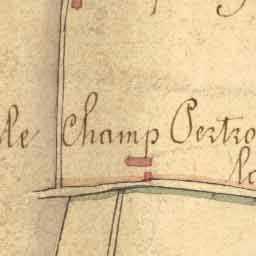 le Champ Pertro
la